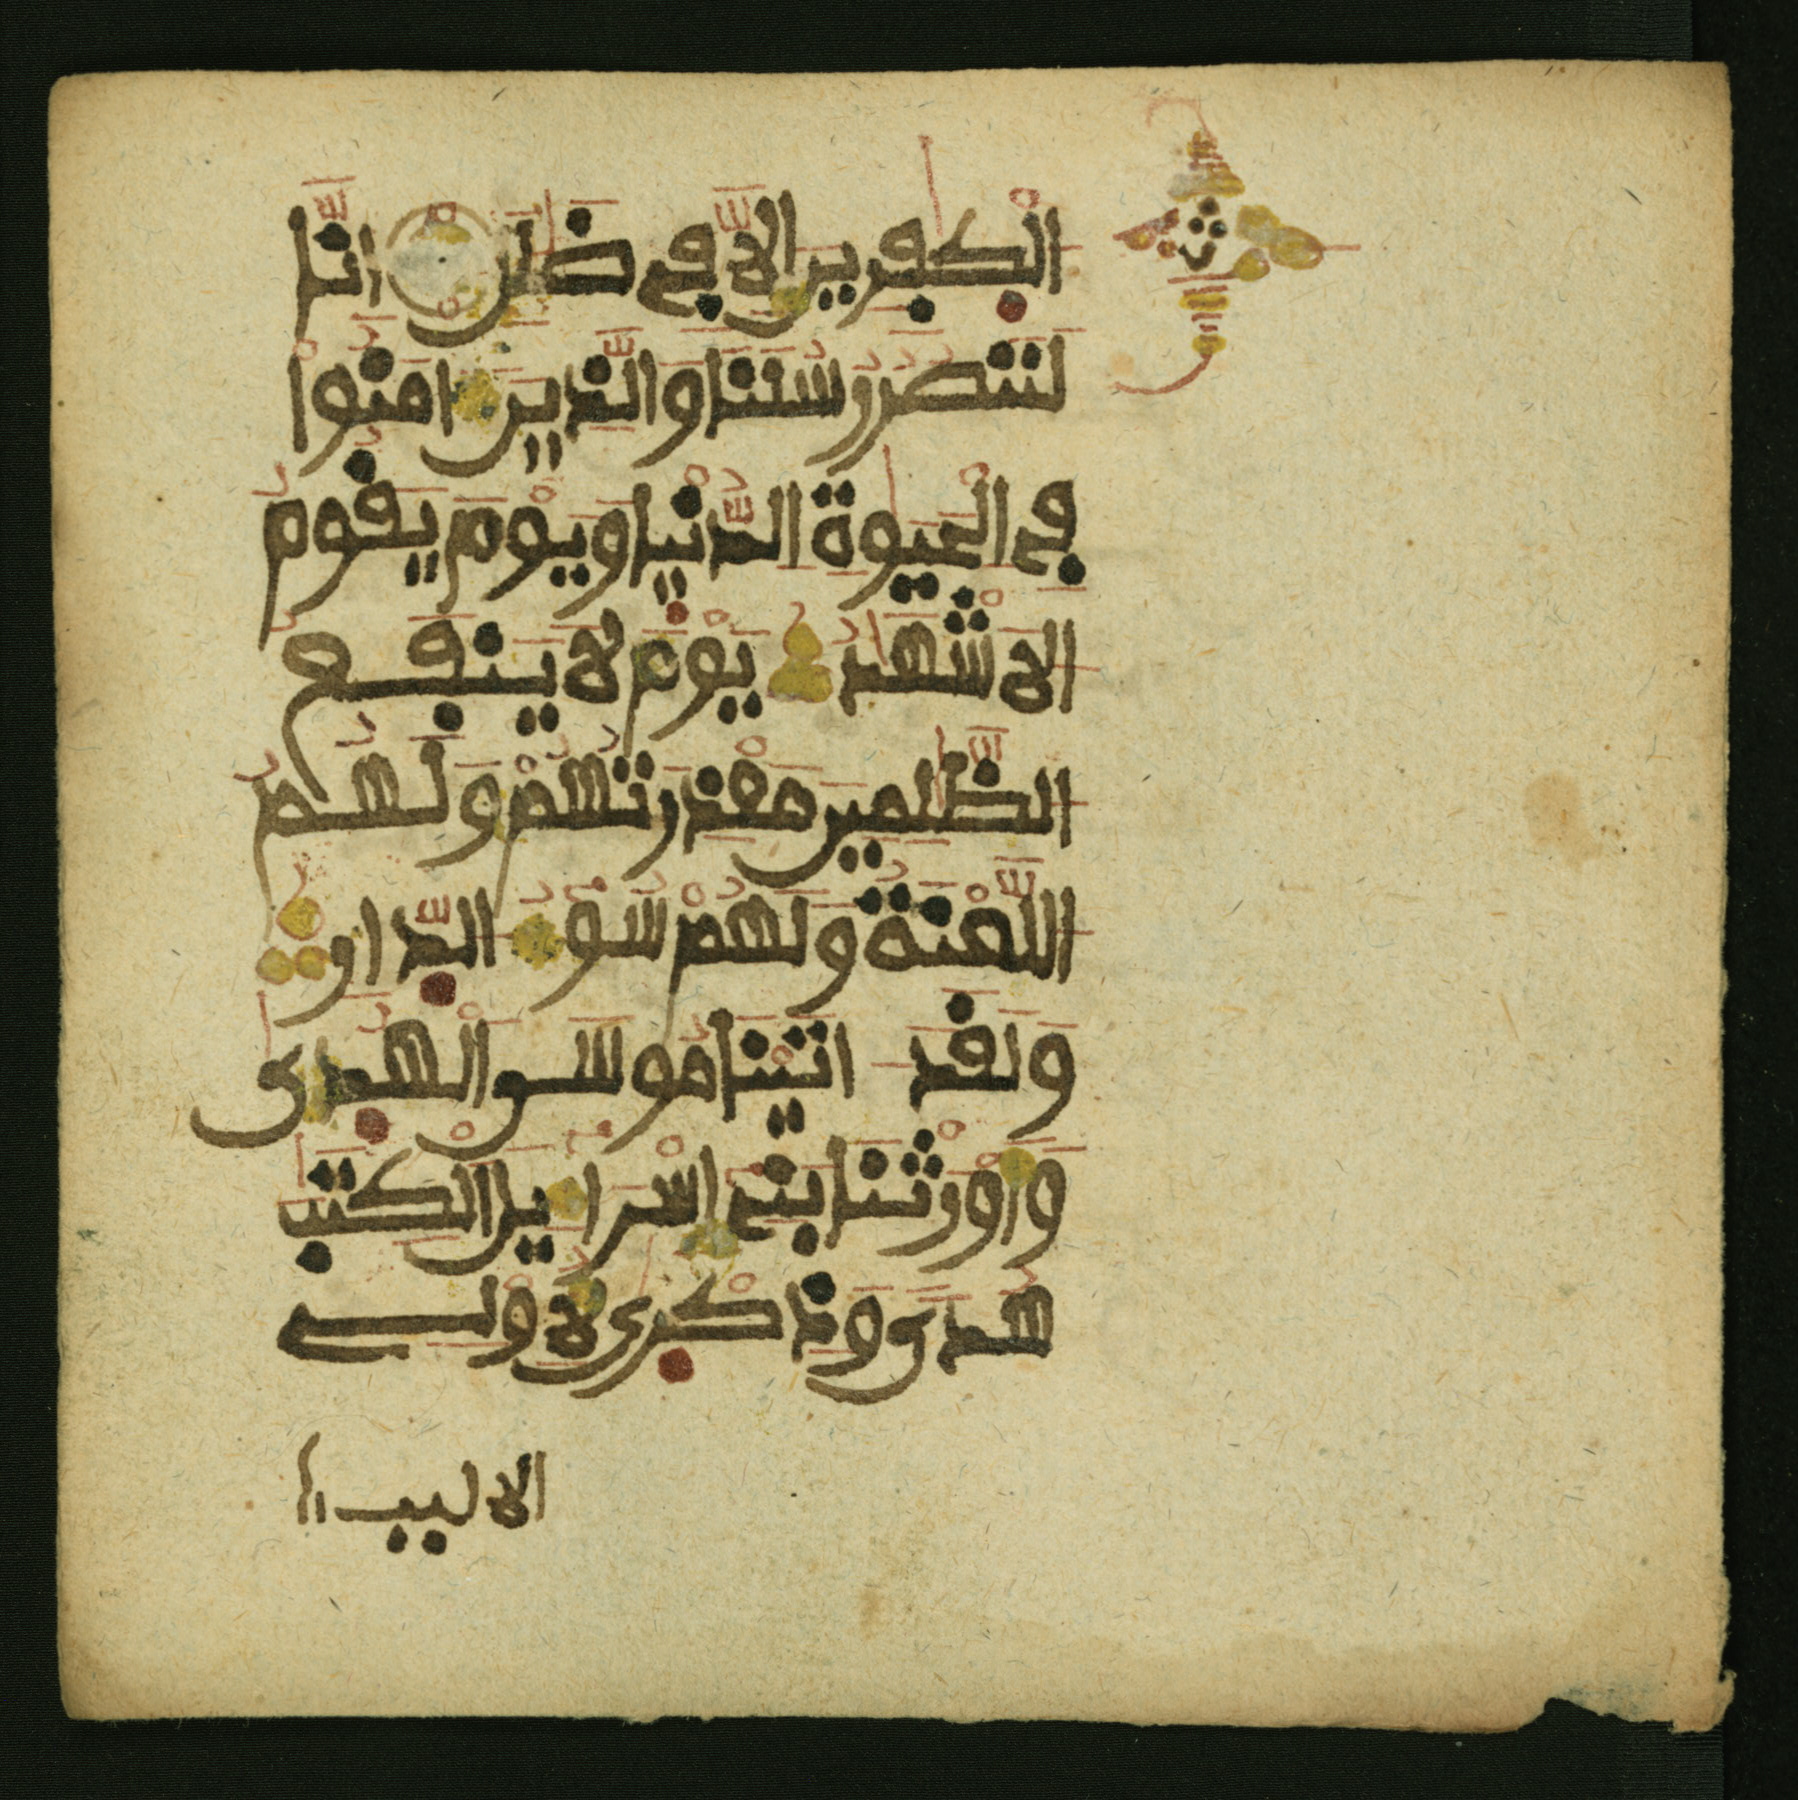 الكفرين الا في ضلل انا
لننصر رسلنا والذين ءامنوا
في الحيوة الدنيا ويوم يقوم
الاشهد يوم لا ينفع
الظلمين معذرتهم ولهم
اللعنة ولهم سوء الدار
ولقد اتينا موسى الهدى
واورثنا بني اسراءيل الكتب
هدى وذكرى لاولي
الالبب